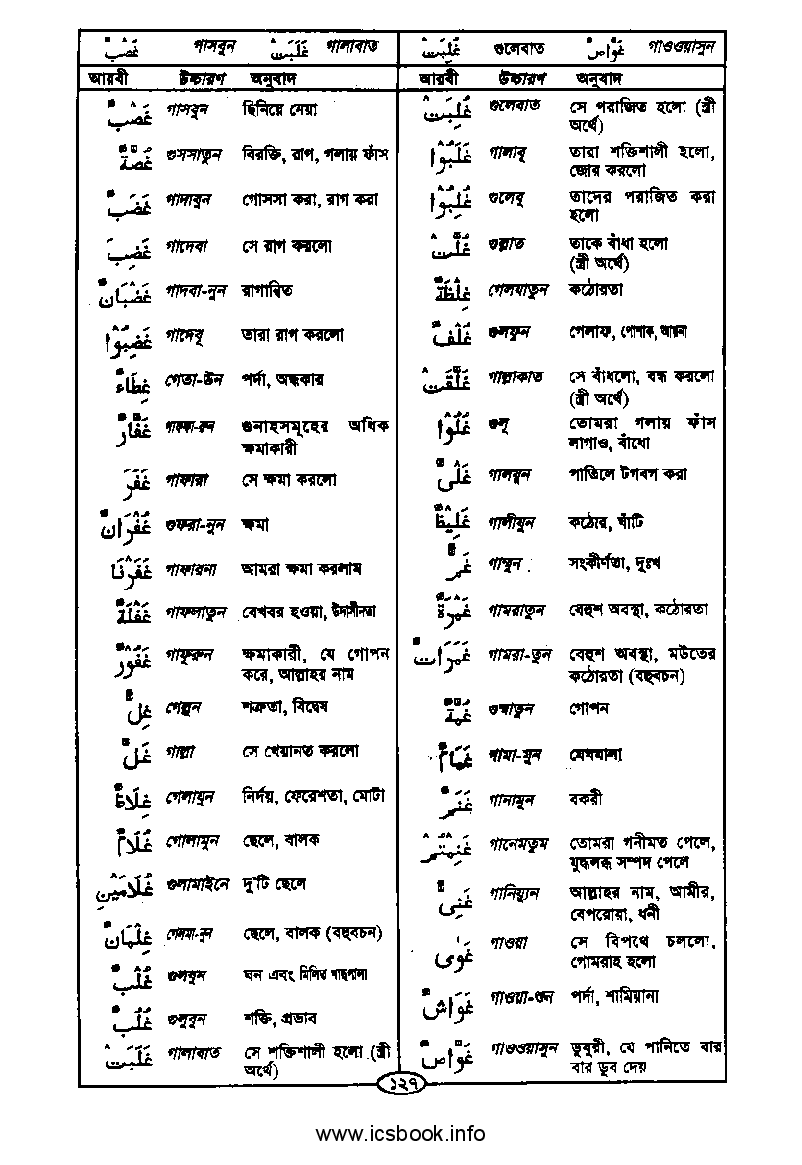 غَصْبٌ গাসবুন غَلَبَتْ গালাবাত
আরবী উচ্চারণ অনুবাদ
غَصْبٌ গাসবুন ছিনিয়ে নেয়া
غُصَّةٌ গুসসাতুন বিরক্তি, রাগ, গলায় ফাঁস
غَضَبٌ গাদাবুন গোসসা করা, রাগ করা
غَضِبَ গাদেবা সে রাগ করলো
غَضْبَانٌ গাদবা-নুন রাগান্বিত
غَضِبُوْا গাদেবূ তারা রাগ করলো
غِطَاءٌ গেতা-উন পর্দা, অন্ধকার
غَفَّارٌ গাফফা-রুন গুনাহসমূহের অধিক
ক্ষমাকারী
غَفَرَ গাফারা সে ক্ষমা করলো
غُفْرَانٌ গুফরা-নুন ক্ষমা
غَفَرْنَا গাফারনা আমরা ক্ষমা করলাম
غَفْلَةٌ গাফলাতুন বেখবর হওয়া, উদাসীনতা
غَفُوْرٌ গাফূরুন ক্ষমাকারী, যে গোপন
করে, আল্লাহর নাম
غِلٌّ গেল্লুন শত্রুতা, বিদ্বেষ
غَلَّ গাল্লা সে খেয়ানত করলো
غِلَاظٌ গেলাযুন নির্দয়, ফেরেশতা, মোটা
غُلَامٌ গোলামুন ছেলে, বালক
غُلَامَيْنِ গুলামাইনে দু'টি ছেলে
غِلْمَانٌ গেলমা-নুন ছেলে, বালক (বহুবচন)
غُلْبٌ গুলবুন ঘন এবং মিলিত গাছপালা
غُلُبٌ গুলুবুন শক্তি, প্রভাব
غَلَبَتْ গালাবাত সে শক্তিশালী হলো (স্ত্রী
অর্থে)
غُلِبَتْ গুলেবাত غَوَّاصٌ গাওওয়াসুন
আরবী উচ্চারণ অনুবাদ
غُلِبَتْ গুলেবাত সে পরাজিত হলো (স্ত্রী
অর্থে)
غَلَبُوْا গালাবূ তারা শক্তিশালী হলো,
জোর করলো
غُلِبُوْا গুলেবূ তাদের পরাজিত করা
হলো
غُلَّتْ গুল্লাত তাকে বাঁধা হলো
(স্ত্রী অর্থে)
غِلْظَةٌ গেলযাতুন কঠোরতা
غُلْفٌ গুলফুন গেলাফ, পোশাক,
غَلَّقَتْ গাল্লাকাত সে বাঁধলো, বন্ধ করলো
(স্ত্রী অর্থে)
غُلُّوْا গুলূ তোমরা গলায় ফাঁস
লাগাও, বাঁধো
غَلْىٌ গালয়ুন পাতিলে টগবগ করা
غَلِيْظٌ গালীযুন কঠোর, খাঁটি
غَمٌّ গাম্মুন সংকীর্ণতা, দুঃখ
غَمْرَةٌ গামরাতুন বেহুশ অবস্থা, কঠোরতা
غَمَرَاتٌ গামরা-তুন বেহুশ অবস্থা, মউতের
কঠোরতা (বহুবচন)
غُمَّةٌ গুম্মাতুন গোপন
غَمَامٌ গামা-মুন মেঘমালা
غَنَمٌ গানামুন বকরী
غَنِمْتُمْ গানেমতুম তোমরা গনীমত পেলে,
যুদ্ধলব্ধ সম্পদ পেলে
غَنِىٌّ গানিয়্যুন আল্লাহর নাম, আমীর,
বেপরোয়া, ধনী
غَوٰى গাওয়া সে বিপথে চললো,
গোমরাহ হলো
غَوَاشٌ গাওয়া-শুন পর্দা, শামিয়ানা
غَوَّاصٌ গাওওয়াসুন ডুবুরী, যে পানিতে বার
বার ডুব দেয়
১২৭
www.icsbook.info